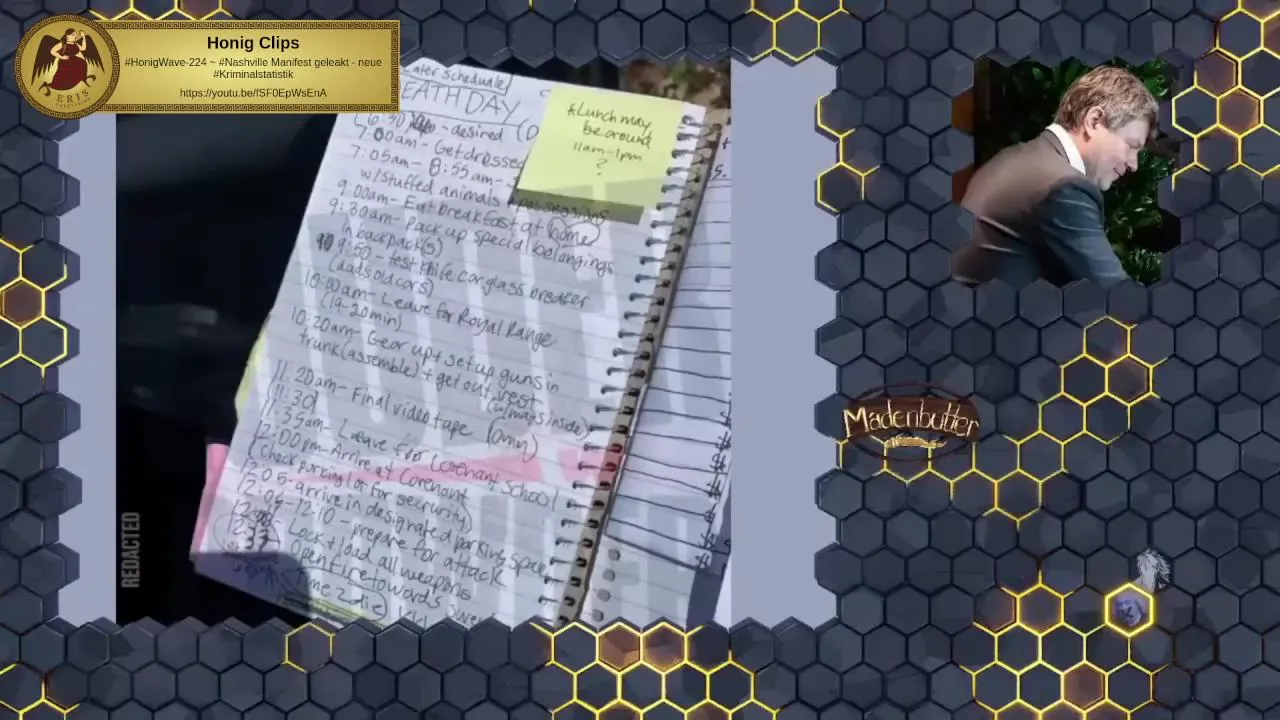 Honig Clips
#HonigWave-224 ~ #Nashville Manifest geleakt - neue
#Kriminalstatistik
https://youtu.be/fSF0EpWsEnA
ERIS
ater Scheduale)
EATH DAY
- desired
7:00am- Get dressed
7:05am- 8:55am-
w/stuffed animals + possessions
9:00am- Eat breakfast at home
9:30am- Pack up special belongings
in backpack(s)
9:50 - test knife car glass breaker
(dads old cars)
10:00am- Leave for Royal Range
(19-20min)
10:20am- Gear up + set up guns in
trunk (assemble) + get out vest
(w/mags inside)
11:20am- Final video tape (0my)
11:30
11:35am- Leave fro Covenant School
12:00pm- Arrive at Covenant
(check parking lot for security)
12:05-arrive in designated parking space
12:10 - prepare for attack
Lock + load all weapons
Open fire towards
Time 2 die
*Lunch may
be around
11am-1pm
?
REDACTED
Madenbutter